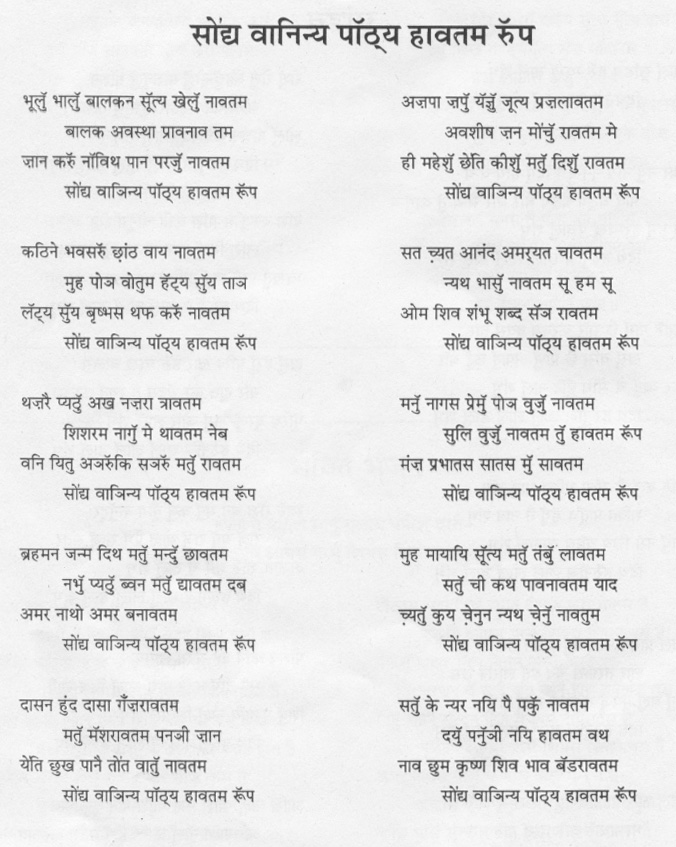 सोंद्य वानिन्य पॉठ्य हावतम रुॅप
भूलुॅ भालुॅ बालकन सूॅत्य खेलुॅ नावतम
बालक अवस्था प्रावनाव तम
ज़ान करुॅ नॉविथ पान परज़ुॅ नावतम
सोंद्य वाञिन्य पॉठ्य हावतम रूॅप
कठिने भवसरुॅ छ़ांठ वाय नावतम
मुह पोञ वोतुम हॅट्य सुॅय ताञ
लॅट्य सुॅय बृष्भस थफ करुॅ नावतम
सोंद्य वाञिन्य पॉठ्य हावतम रूॅप
थज़रै प्यठुॅ अख नज़रा त्रावतम
शिशरम नागुॅ मे थावतम नेब
वनि यितु अञरुॅकि सञरुॅ मतुॅ रावतम
सोंद्य वाञिन्य पॉठ्य हावतम रूॅप
ब्रहमन जन्म दिथ मतुॅ मन्दुॅ छावतम
नभुॅ प्यठुॅ ब्वन मतुॅ द्यावतम दब
अमर नाथो अमर बनावतम
सोंद्य वाञिन्य पॉठ्य हावतम रूॅप
दासन हुंद दासा गॅंज़रावतम
मतुॅ मॅशरावतम पनञी ज़ान
येंति छुख पानै तोंत वातुॅ नावतम
सोंद्य वाञिन्य पॉठ्य हावतम रूॅप
अज़पा ज़पुॅ यॅन्नुॅ जूत्य प्रज़लावतम
अवशीष ज़न मोंचुॅ रावतम मे
ही महेशुॅ छेति कीशुॅ मतुॅ दिशुॅ रावतम
सोंद्य वाञिन्य पॉठ्य हावतम रूॅप
सत च़्यत आनंद अमर्‌यत चावतम
न्यथ भासुॅ नावतम सू हम सू
ओम शिव शंभू शब्द सॅञ रावतम
सोंद्य वाञिन्य पॉठ्य हावतम रूॅप
मनुॅ नागस प्रेमुॅ पोञ वुज़ुॅ नावतम
सुलि वुज़ुॅ नावतम तुॅ हावतम रूॅप
मंज़ प्रभातस सातस मुॅ सावतम
सोंद्य वाञिन्य पॉठ्य हावतम रूॅप
मुह मायायि सूॅत्य मतुॅ तंबुॅ लावतम
सतुॅ ची कथ पावनावतम याद
च़्यतुॅ कुय चे़नुन न्यथ चे़नुॅ नावतुम
सोंद्य वाञिन्य पॉठ्य हावतम रूॅप
सतुॅ के न्यर नयि पै पकुॅ नावतम
दयुॅ पनुॅञी नयि हावतम वथ
नाव छुम कृष्ण शिव भाव बॅडरावतम
सोंद्य वाञिन्य पॉठ्य हावतम रूॅप